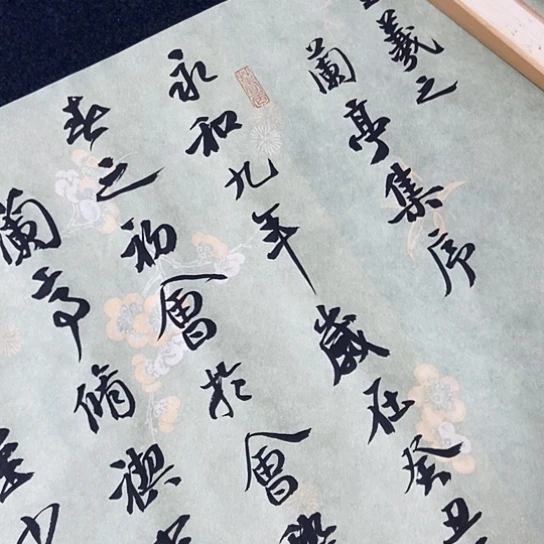 羲之
蘭亭集序
永和九年歲在癸丑
春之初會於會
蘭亭脩禊
至少